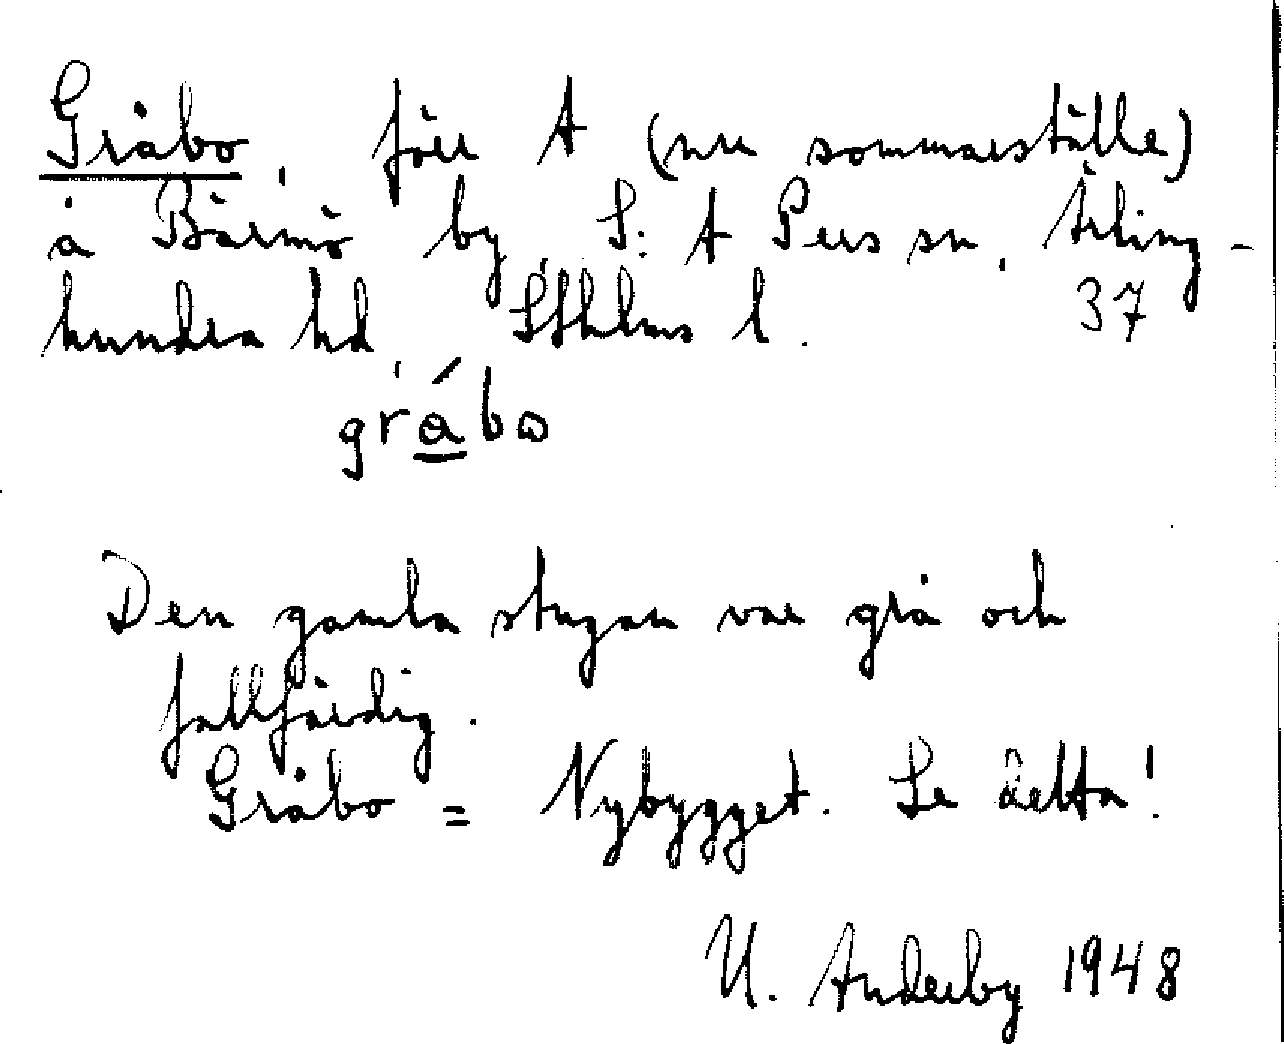 Gråbo, förr t (nu sommarställe)
å Bärmö by, S:t Pers sn, Ärling-
hundra hd, Sthlms l. 37
gråbo
Den gamla stugan var grå och
fallfärdig.
Gråbo = Nybygget. Se detta!
U. Anderby 1948